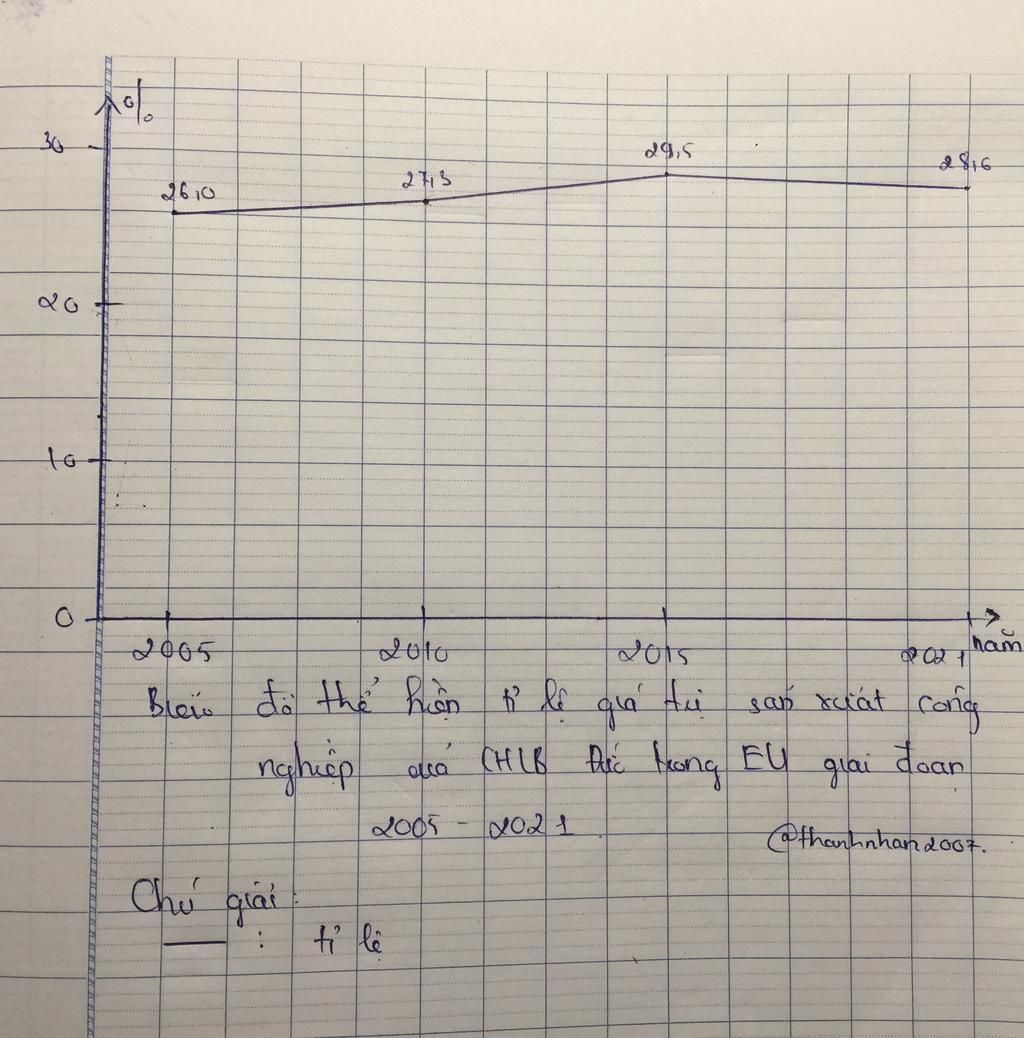 %
30
29,5
28,6
27,3
26,0
20
10
0
2005 2010 2015 2021 năm
Biểu đồ thể hiện tỉ lệ giá trị sản xuất công
nghiệp của CHLB Đức trong EU giai đoạn
2005 - 2021
@thanhnhan2007.
Chú giải:
: tỉ lệ